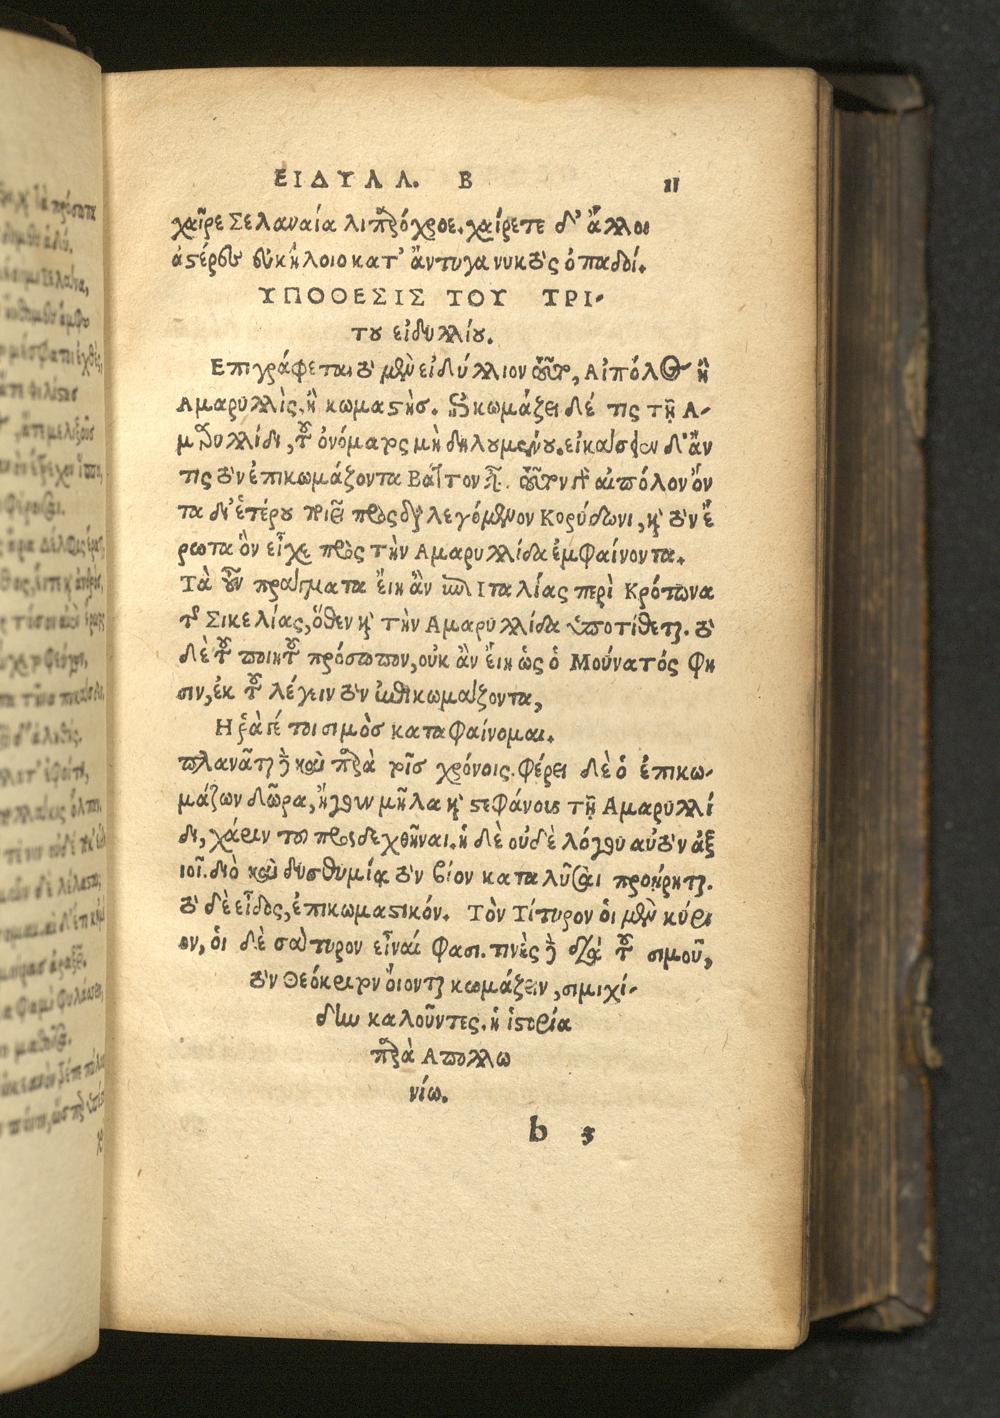 ΕΙΔΥΛΛ. Β 11
χαῖρε Σελαναία λιπαρόχροε. χαίρετε δ' ἄλλοι
ἀστέρες εὐκήλοιο κατ' ἄντυγα νυκτὸς ὀπαδοί.
ΥΠΟΘΕΣΙΣ ΤΟΥ ΤΡΙ-
του εἰδυλλίου.
Επιγράφεται τὸ μὲν εἰδύλλιον τοῦτο, Αἰπόλος ἢ
Αμαρυλλὶς, ἢ κωμαστὴσ. κωμάζει δέ τις τῇ Α-
μαρυλλίδι, τοῦ ὀνόματος μὴ δηλουμένου. εἰκάσειεν δ' ἄν
τις τὸν ἐπικωμάζοντα Βάττον τοῦτον αἰπόλον ὄν
τα δι' ἑτέρου προσδιαλεγόμενον Κορύδωνι, καὶ τὸν ἔ
ρωτα ὃν εἶχε πρὸς τὴν Αμαρυλλίδα ἐμφαίνοντα.
Τὰ πράγματα εἴη ἂν ἐπὶ Ιταλίας περὶ Κρότωνα
τῆς Σικελίας, ὅθεν καὶ τὴν Αμαρυλλίδα ὑποτίθεται. τὸ
δὲ τοῦ ποιητοῦ πρόσωπον, οὐκ ἂν εἴη ὡς ὁ Μούνατός φη
σιν, ἐκ τοῦ λέγειν τὸν ἐπικωμάζοντα,
Η ῥά γέ τοι σιμὸσ καταφαίνομαι.
πλανᾶται δὲ καὶ παρὰ τοῖσ χρόνοις. φέρει δὲ ὁ ἐπικω-
μάζων δῶρα, ἤγουν μῆλα καὶ στεφάνους τῇ Αμαρυλλί
δι, χάριν τοῦ προσδεχθῆναι. ἡ δὲ οὐδὲ λόγου αὐτὸν ἀξ
ιοῖ. διὸ καὶ δυσθυμίᾳ τὸν βίον καταλῦσαι προῄρηται.
τὸ δὲ εἶδος, ἐπικωμαστικόν. Τὸν Τίτυρον οἱ μὲν κύρι
ον, οἱ δὲ σάτυρον εἶναί φασι. τινὲς δὲ διὰ τοῦ σιμοῦ,
τὸν Θεόκριτον οἴονται κωμάζειν, σιμιχί-
δην καλοῦντες. ἡ ἱστορία
παρὰ Απολλω
νίω.
b 3